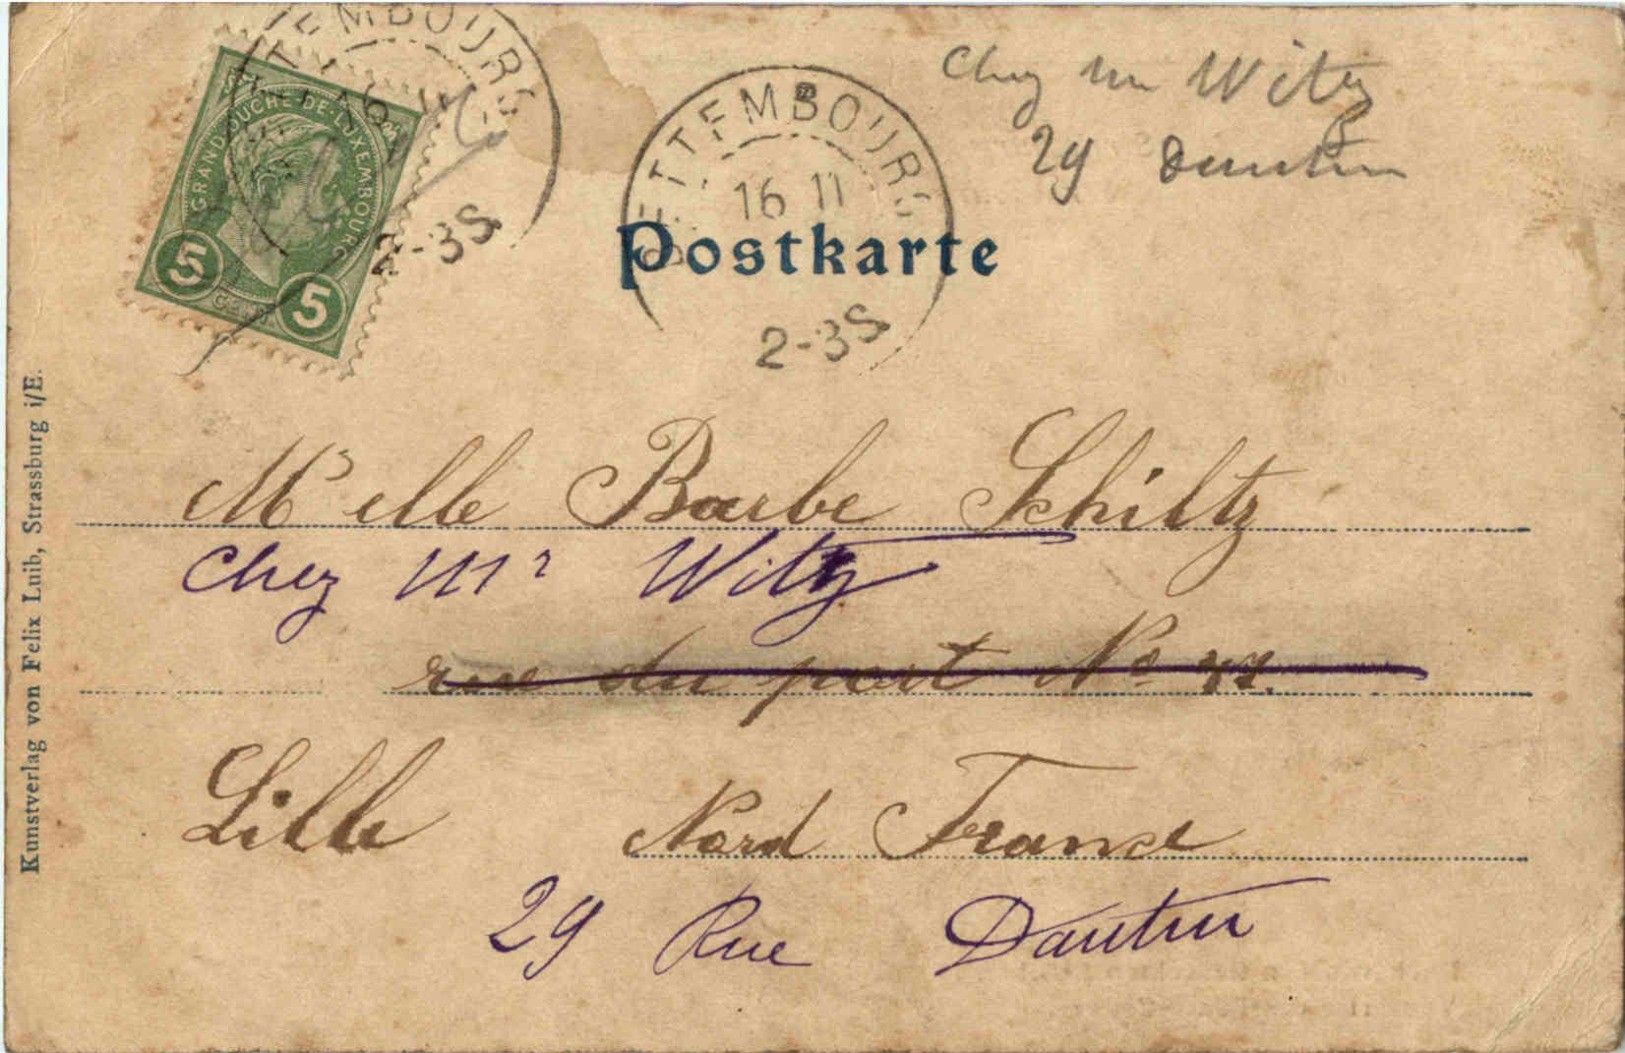 GRAND-DUCHÉ-DE-LUXEMBOURG
5 5
BETTEMBOURG
16 11
2-3S
2-3S
Chez mr Witz
29
Postkarte
Kunstverlag von Felix Luib, Strassburg i/E.
Melle Barbe Schiltz
Chez Mr Witz
rue du port No
Lille Nord France
29 Rue Dantin